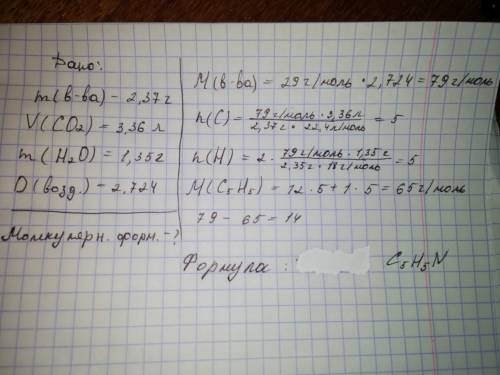 Дано:
m(в-ва) - 2,37г
V(CO₂) = 3,36 л
m(H₂O) = 1,35г
D(возд.) - 2,724
Молекулярн. форм. - ?
M(в-ва) = 29г/моль · 2,724 = 79г/моль
n(C) = 79г/моль · 3,36л / 2,37г · 22,4л/моль = 5
n(H) = 2 · 79г/моль · 1,35г / 2,35г · 18г/моль = 5
M(C₅H₅) = 12 · 5 + 1 · 5 = 65г/моль
79 - 65 = 14
Формула : C₅H₅N